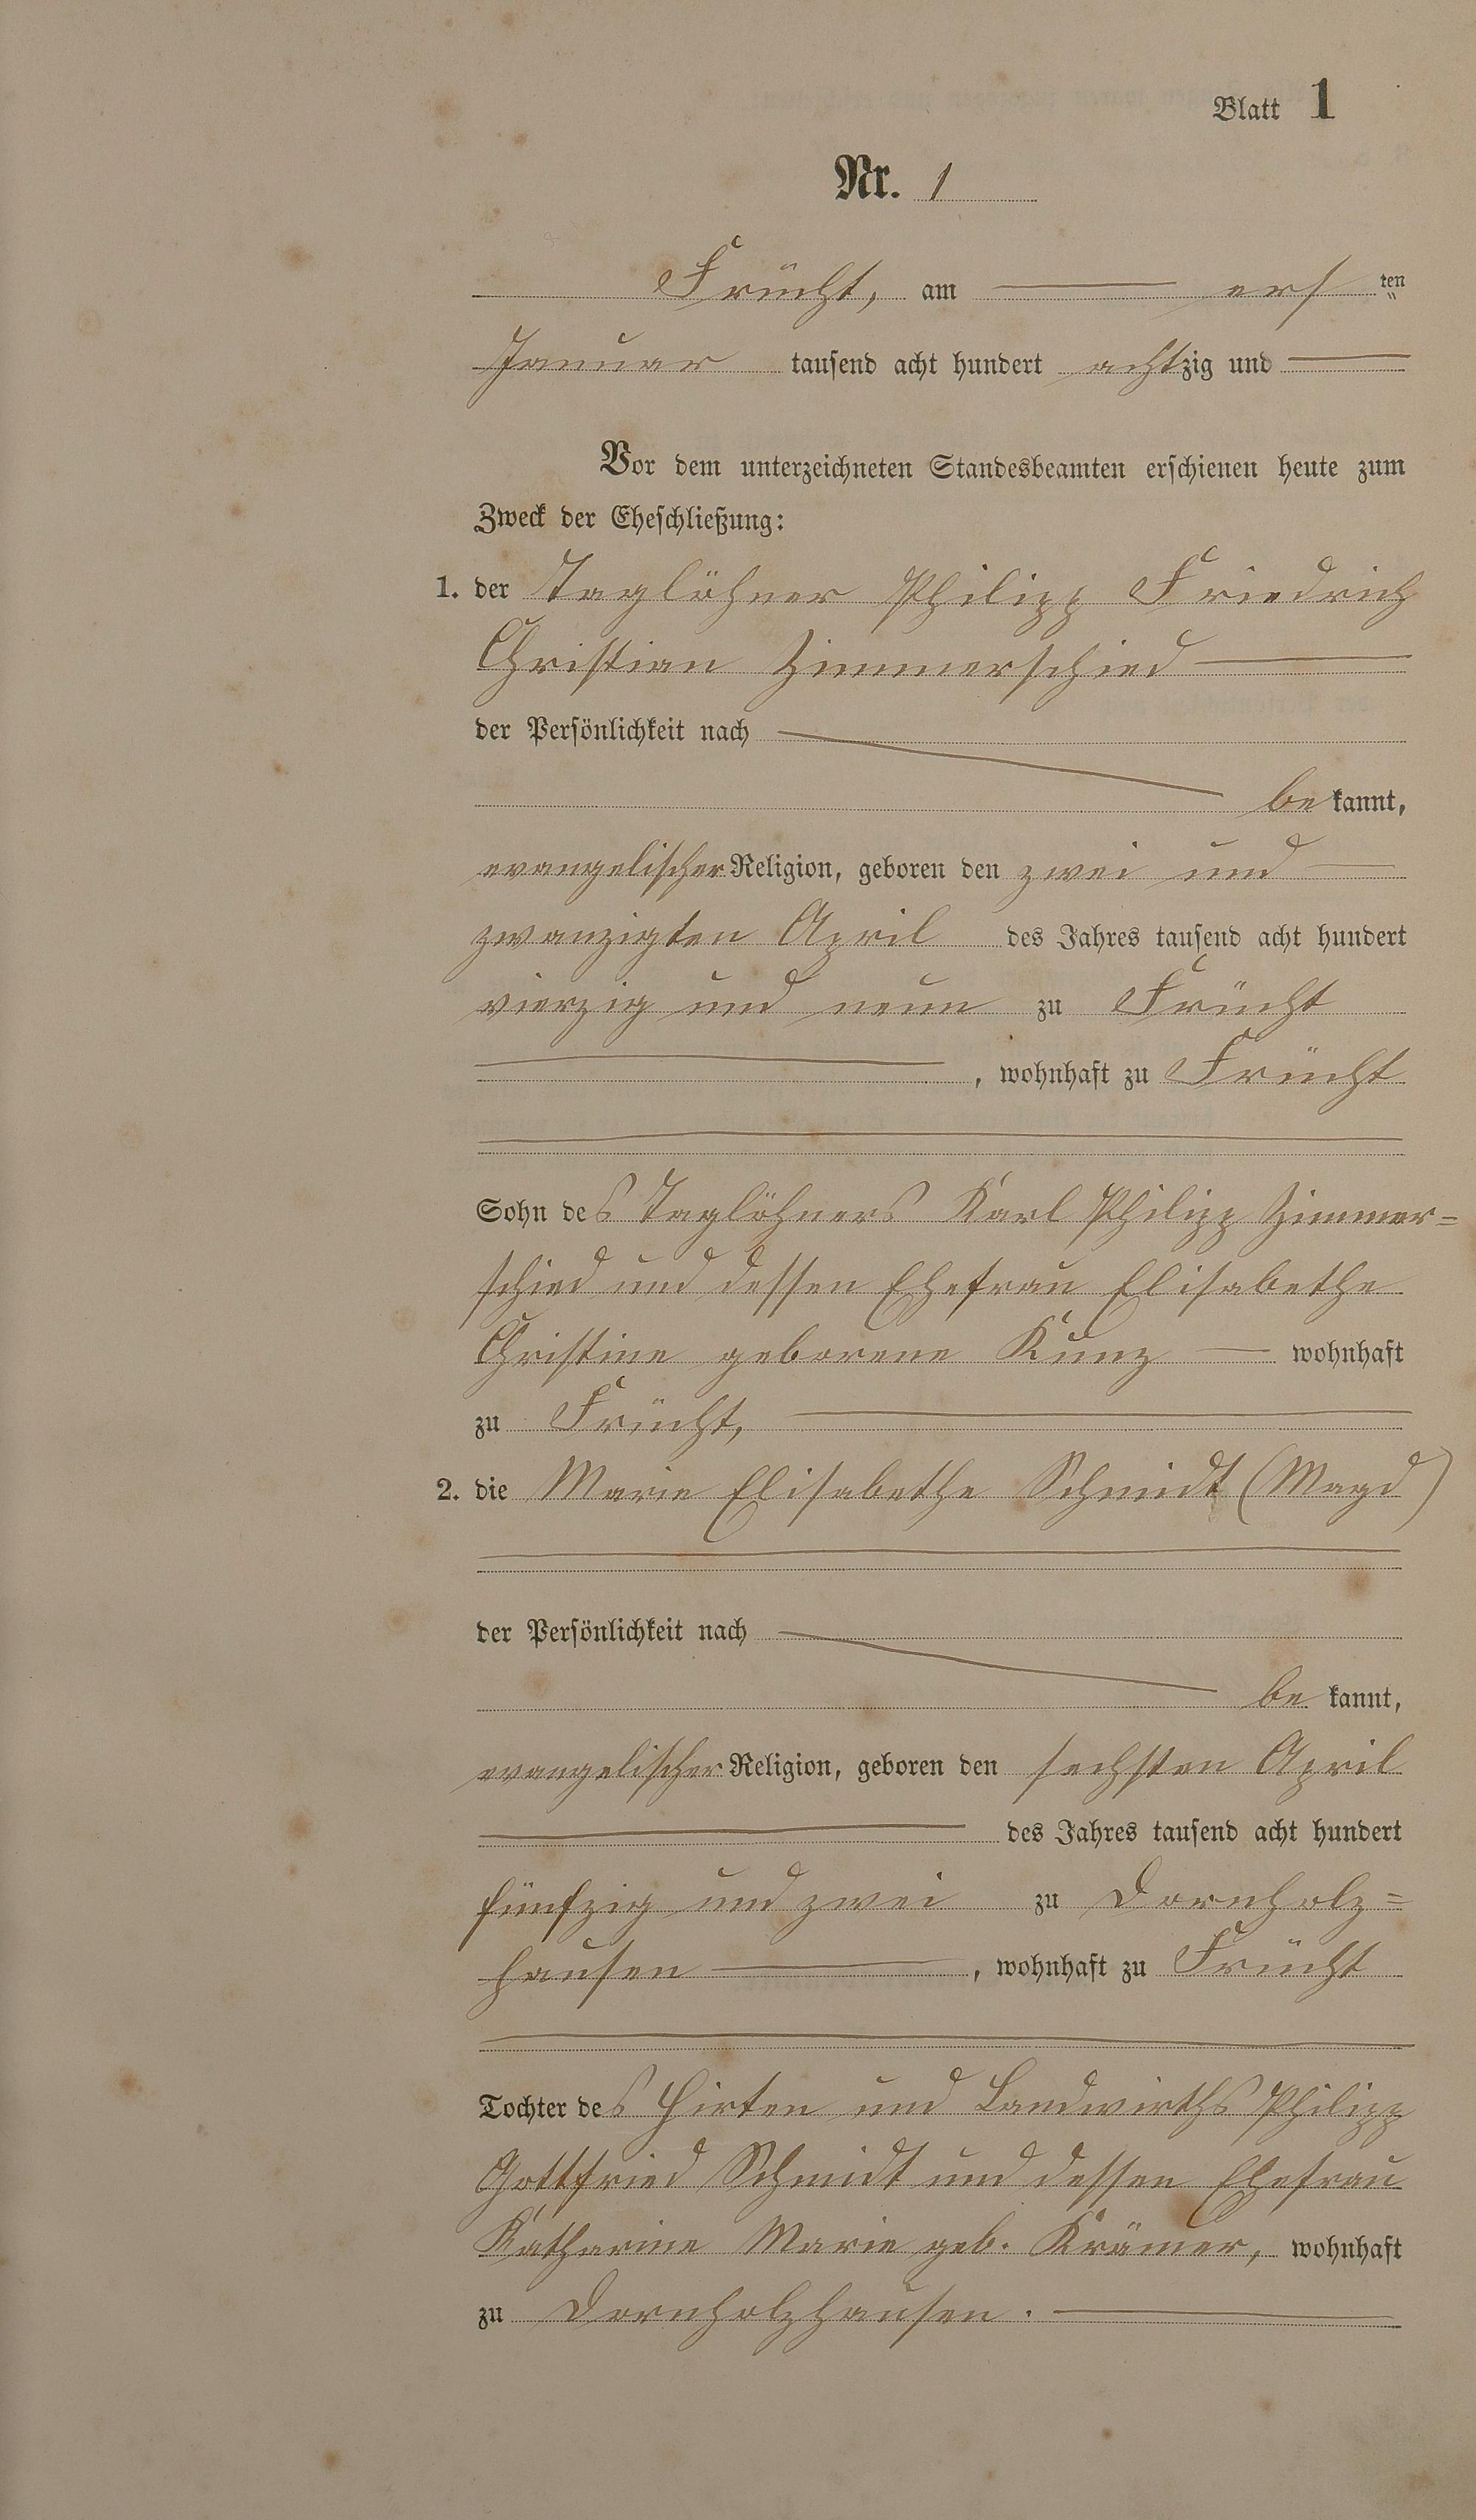 Blatt 1
Nr. 1
Frücht, am ersten
Januar tausend acht hundert achtzig und
Vor dem unterzeichneten Standesbeamten erschienen heute zum
Zweck der Eheschließung:
1. der Taglöhner Philipp Friedrich
Christian Zimmerschied
der Persönlichkeit nach
bekannt,
evangelischer Religion, geboren den zwei und
zwanzigten April des Jahres tausend acht hundert
vierzig und neun zu Frücht
, wohnhaft zu Frücht
Sohn des Taglöhners Karl Philipp Zimmer=
schied und dessen Ehefrau Elisabethe
Christine geborene Kunz wohnhaft
zu Frücht,
2. die Marie Elisabethe Schmidt (Magd)
der Persönlichkeit nach
bekannt,
evangelischer Religion, geboren den sechsten April
des Jahres tausend acht hundert
fünfzig und zwei zu Dornholz=
hausen, wohnhaft zu Frücht
Tochter des Hirten und Landwirths Philipp
Gottfried Schmidt und dessen Ehefrau
Katharine Marie geb. Krämer, wohnhaft
zu Dornholzhausen.